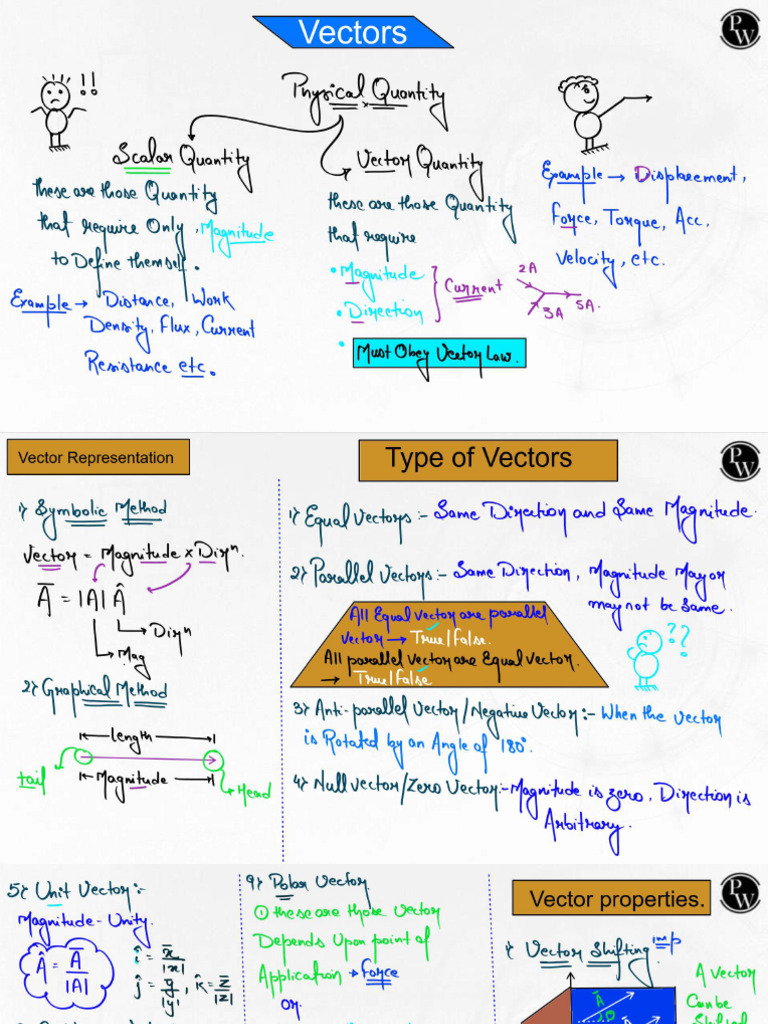 Vectors
PW
Physical Quantity
!!
Scalar Quantity
These are those Quantity
that require Only, Magnitude
to Define themself.
Example → Distance, Work
Density, Flux, Current
Resistance etc.
Vector Quantity
These are those Quantity
that require
• Magnitude
• Direction
Current
• Must Obey Vector Law.
2A
3A
5A.
Example → Displacement,
Force, Torque, Acc.
Velocity, etc.
Vector Representation
1) Symbolic Method
Vector = Magnitude x Dirⁿ.
A̅ = |A| Â
Dirⁿ
Mag
2) Graphical Method
Length
tail
Magnitude
Head
Type of Vectors
PW
1) Equal Vectors :- Same Direction and Same Magnitude.
2) Parallel Vectors :- Same Direction, Magnitude May or
may not be Same.
All Equal vector are parallel
vector → True/False.
All parallel vector are Equal vector.
→ True/False
??
3) Anti-parallel Vector/Negative Vector :- When the vector
is Rotated by an Angle of 180°.
4) Null vector/Zero Vector :- Magnitude is zero, Direction is
Arbitrary.
5) Unit Vector :-
Magnitude - Unity.
Â = A̅ / |A|
î = x̅ / |x|
ĵ = y̅ / |y|, k̂ = z̅ / |z|
9) Polar Vector
① These are those Vector
Depends Upon point of
Application → Force
or.
Vector properties.
PW
1) Vector Shifting imp
A̅
θ
A Vector
Can be
Shifted